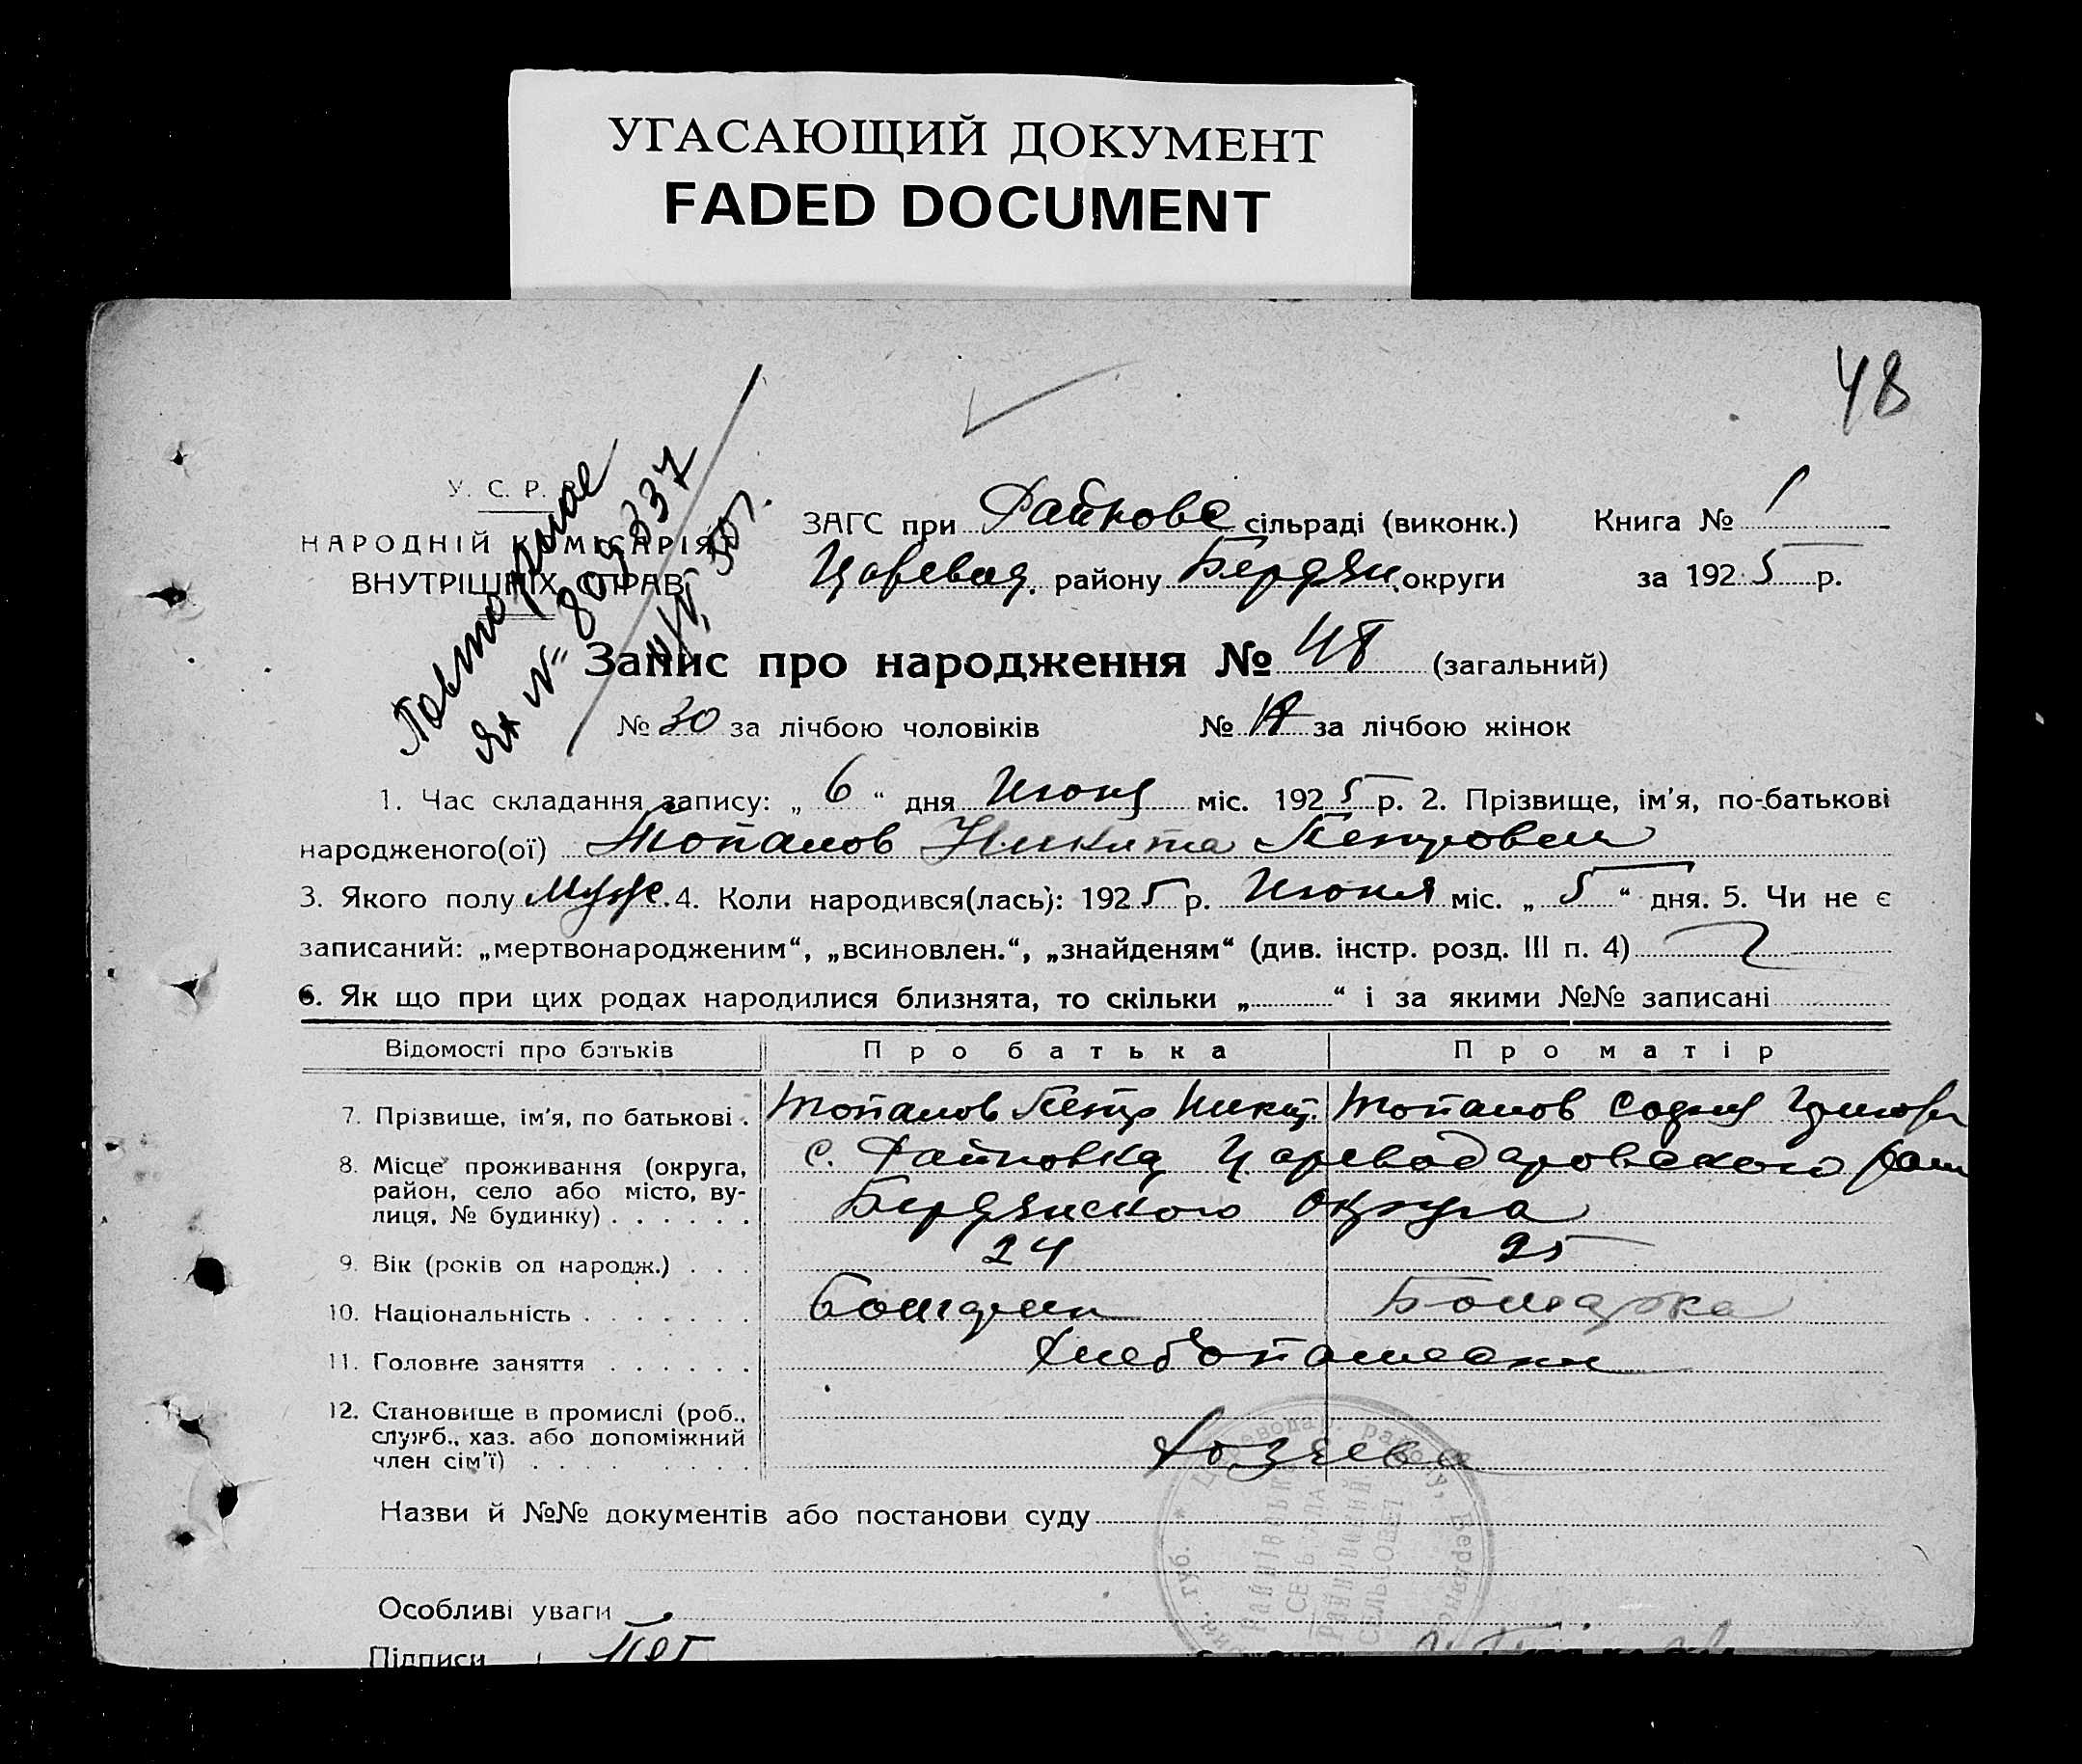 УГАСАЮЩИЙ ДОКУМЕНТ
FADED DOCUMENT
48
У. С. Р. Р.
НАРОДНІЙ КОМІСАРІЯТ
ВНУТРІШНІХ СПРАВ
Повторное
№ 809337
ЗАГС при Райнове сільраді (виконк.) Книга № 1
Царевод. району Бердян. округи за 1925 р.
Запис про народження № 48 (загальний)
№ 30 за лічбою чоловіків № за лічбою жінок
1. Час складання запису: „ 6 “ дня Июня міс. 1925 р. 2. Прізвище, ім'я, по-батькові
народженого(ої) Топалов Никита Петрович
3. Якого полу Муж. 4. Коли народився(лась): 1925 р. Июня міс. „ 5 “ дня. 5. Чи не є
записаний: „мертвонародженим“, „всиновлен.“, „знайденям“ (див. інстр. розд. III п. 4)
6. Як що при цих родах народилися близнята, то скільки „ “ і за якими №№ записані
Відомості про батьків Про батька Про матір
7. Прізвище, ім'я, по батькові . Топалов Петр Никит. Топалов София
8. Місце проживання (округа, район, село або місто, вулиця, № будинку) . . . . . . с. Райновка Цареводаровского рай
Бердянского округа
9. Вік (років од народж.) . . . 24 25
10. Національність . . . . . . . Болгарин Болгарка
11. Головне заняття . . . . . . Хлебопашество
12. Становище в промислі (роб., служб., хаз. або допоміжний член сім'ї) . . . . . . . . . Хозяева
Назви й №№ документів або постанови суду
РАЙНОВСКИЙ
СЕЛЬСОВЕТ
Особливі уваги
Підписи